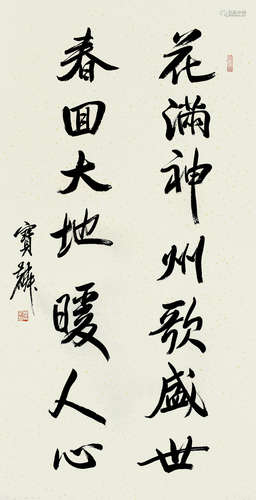 花满神州歌盛世
春回大地暖人心
宝麟